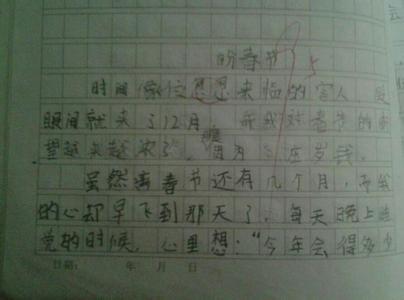 盼春节
5
时间像位匆匆来临的客人 眨
眼间就来了12月 而我对春节的盼
望越来越浓 因为 压岁钱
虽然离春节还有几个月，而我
的心却早飞到那天了。每天晚上睡
觉的时候，心里想："今年会得多少
日期： 年 月 日